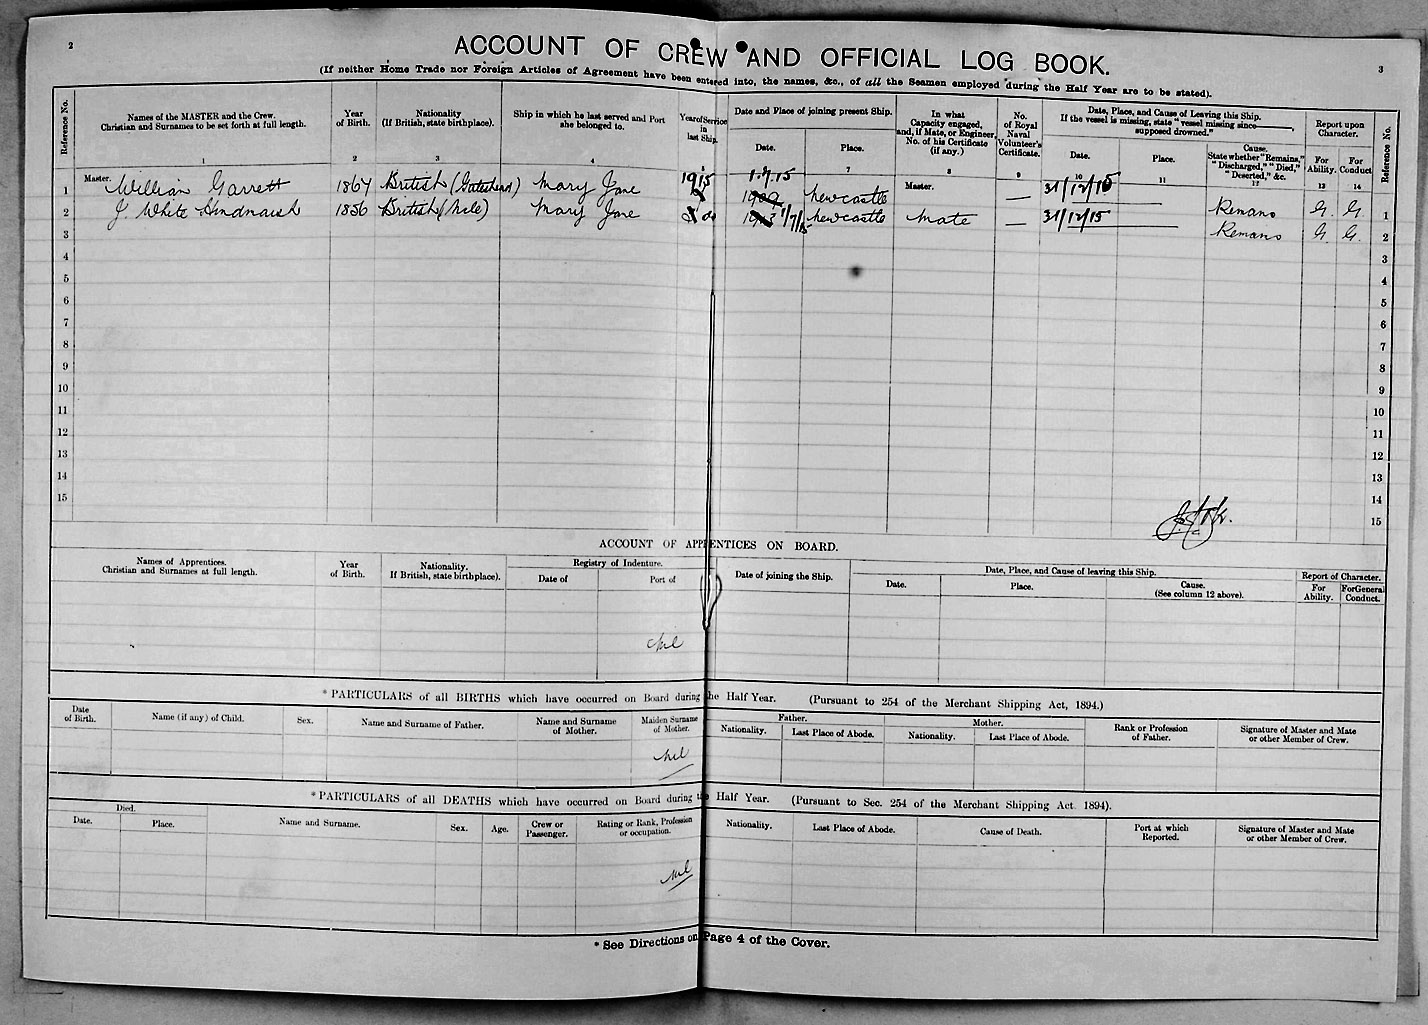 2
3
ACCOUNT OF CREW AND OFFICIAL LOG BOOK.
(If neither Home Trade nor Foreign Articles of Agreement have been entered into, the names, &c., of all the Seamen employed during the Half Year are to be stated).
Reference No.
Names of the MASTER and the Crew.
Christian and Surnames to be set forth at full length.
1
Year
of Birth.
2
Nationality
(If British, state birthplace).
3
Ship in which he last served and Port
she belonged to.
4
Year of Service
in
last Ship.
5
Date and Place of joining present Ship.
Date.
Place.
7
In what
Capacity engaged,
and, if Mate, or Engineer,
No. of his Certificate
(if any.)
8
No.
of Royal
Naval
Volunteer's
Certificate.
9
Date, Place, and Cause of Leaving this Ship.
If the vessel is missing, state "vessel missing since
supposed drowned."
Date.
10
Place.
11
Cause.
State whether "Remains,"
"Discharged," "Died,"
"Deserted," &c.
12
Report upon
Character.
For
Ability.
13
For
Conduct
14
Reference No.
1 Master. William Garrett 1864 British (Gateshead) Mary Jane 1915 1.7.15 1909 Newcastle Master. — 31/12/15 Remans G. G. 1
2 J White Hindmarsh 1856 British Mary Jane do 1913 1/7/15 Newcastle Mate — 31/12/15 Remans G. G. 2
3 3
4 4
5 5
6 6
7 7
8 8
9 9
10 10
11 11
12 12
13 13
14 14
15 15
ACCOUNT OF APPRENTICES ON BOARD.
Names of Apprentices.
Christian and Surnames at full length.
Year
of Birth.
Nationality.
If British, state birthplace).
Registry of Indenture.
Date of
Port of
Date of joining the Ship.
Date, Place, and Cause of leaving this Ship.
Date.
Place.
Cause.
(See column 12 above).
Report of Character.
For
Ability.
For General
Conduct.
Nil
* PARTICULARS of all BIRTHS which have occurred on Board during the Half Year. (Pursuant to 254 of the Merchant Shipping Act, 1894.)
Date
of Birth.
Name (if any) of Child.
Sex.
Name and Surname of Father.
Name and Surname
of Mother.
Maiden Surname
of Mother.
Father.
Nationality.
Last Place of Abode.
Mother.
Nationality.
Last Place of Abode.
Rank or Profession
of Father.
Signature of Master and Mate
or other Member of Crew.
Nil
* PARTICULARS of all DEATHS which have occurred on Board during the Half Year. (Pursuant to Sec. 254 of the Merchant Shipping Act. 1894).
Died.
Date.
Place.
Name and Surname.
Sex.
Age.
Crew or
Passenger.
Rating or Rank, Profession
or occupation.
Nationality.
Last Place of Abode.
Cause of Death.
Port at which
Reported.
Signature of Master and Mate
or other Member of Crew.
Nil
* See Directions on Page 4 of the Cover.